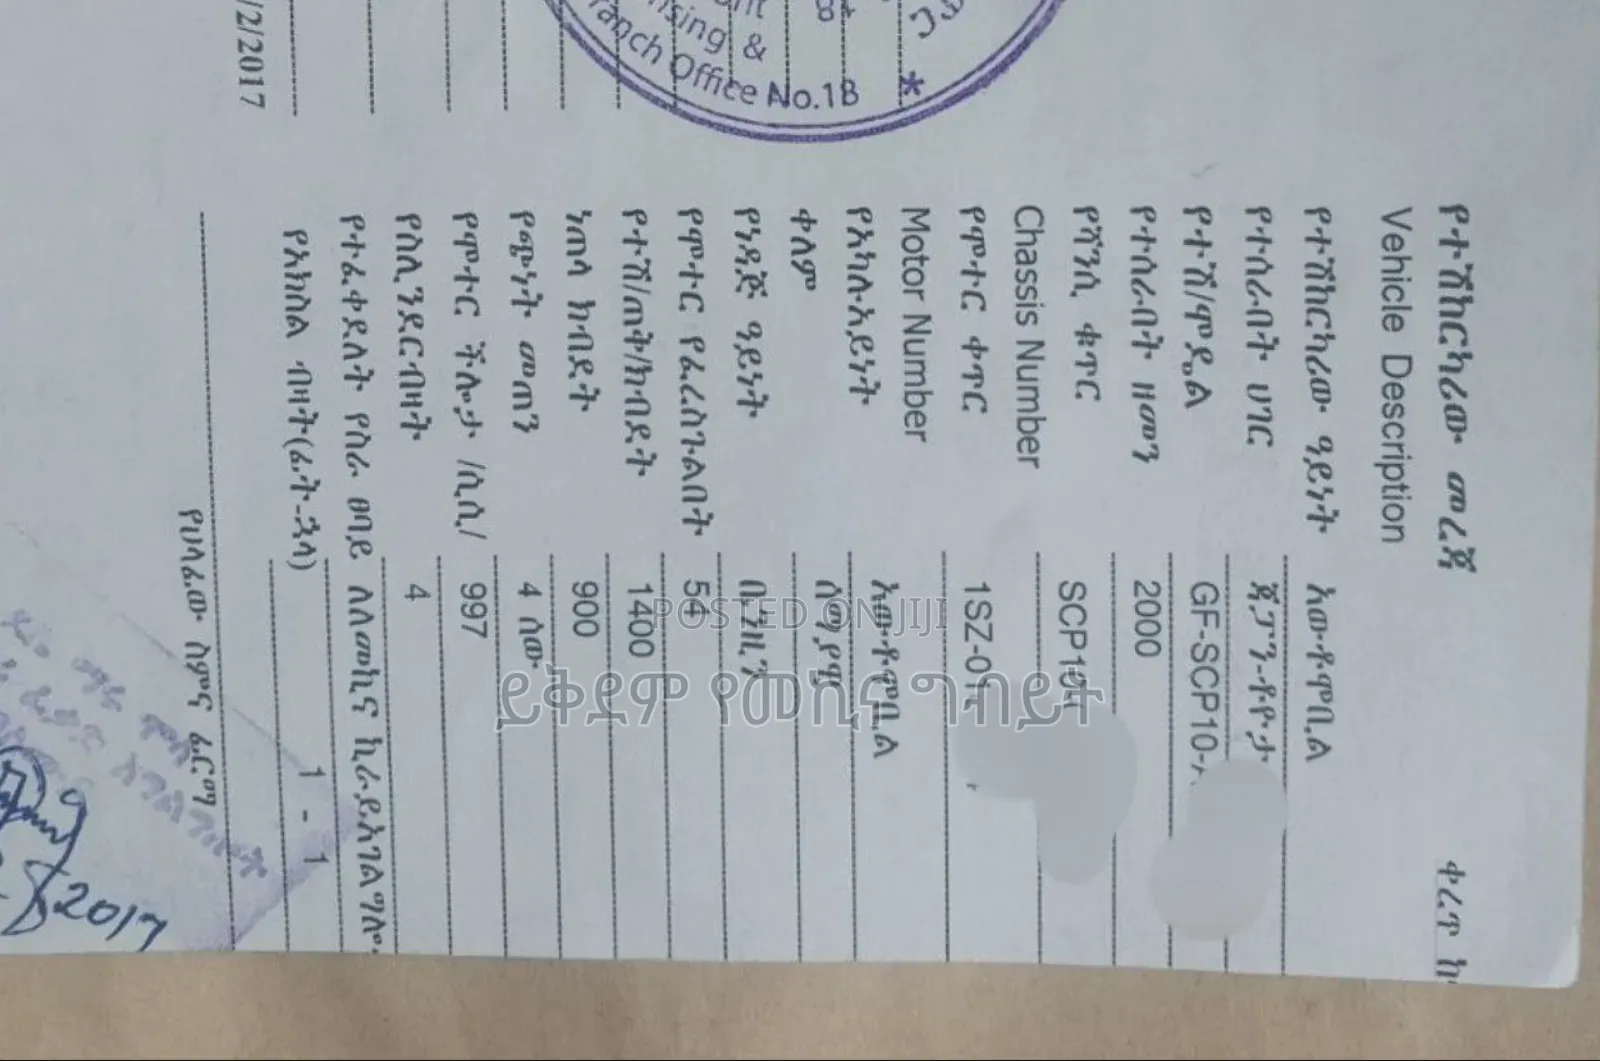 /2/2017
sing &
ranch Office No.1B *
የተሽከርካሪው መረጃ
ቀረጥ
Vehicle Description
የተሽከርካሪው ዓይነት አውቶሞቢል
የተሰራበት ሀገር ጃፓን-ቶዮታ
የተሽ/ሞዴል GF-SCP10-
የተሰራበት ዘመን 2000
የሻንሲ ቁጥር SCP10
Chassis Number
የሞተር ቀጥር 1SZ-01
Motor Number
የአካሉ አይነት አውቶሞቢል
ቀለም ሰማያዊ
የነዳጅ ዓይነት ቤንዚን
የሞተር የፈረስጉልበት 54
የተሽ/ጠቅ/ክብደት 1400
ነጠላ ክብደት 900
የጭነት መጠን 4 ሰው
የሞተር ችሎታ /ሲሲ/ 997
የሲሊንደር ብዛት 4
የተፈቀደለት የስራ ፀባይ ለለመኪና ኪራይ አገልግሎ
የአክስል ብዛት(ፊት-ኋላ) 1 - 1
የሀላፊው ስምና ፊርማ
2017
POSTED ON JIJI
ይቅደም የመኪና ግብይት